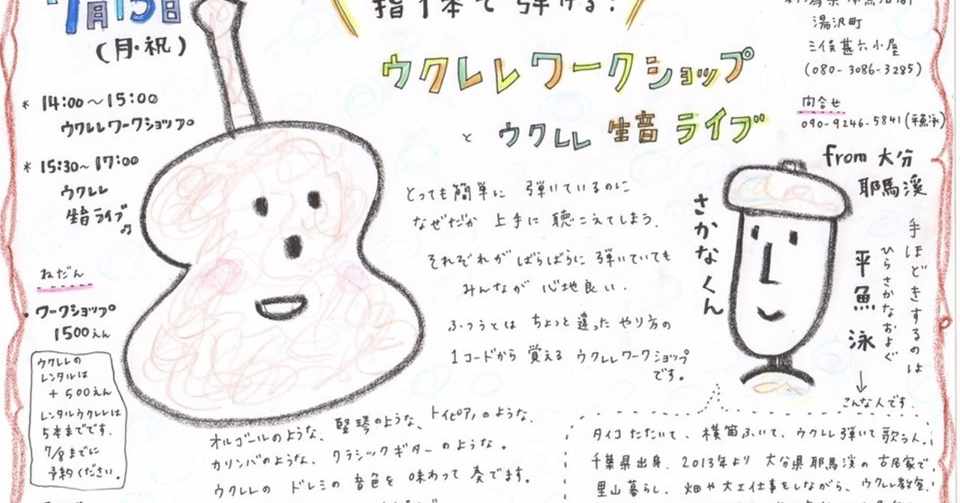 7月15日
(月・祝)
* 14:00〜15:00
ウクレレワークショップ
* 15:30〜17:00
ウクレレ
生音ライブ♫
ねだん
ワークショップ
1500えん
ウクレレの
レンタルは
+500えん
レンタルウクレレは
5本までです。
予約ください。
指1本で弾ける!
ウクレレワークショップ
と ウクレレ 生音 ライブ
湯沢町
三俣甚六小屋
(080-3086-3285)
問合せ
090-9246-5841
from 大分
耶馬溪
手ほどきするのは
ひらさかなおよぐ
平魚泳
→こんな人です.
さかなくん
とっても簡単に 弾いているのに
なぜだか 上手に 聴こえてしまう.
それぞれがばらばらに 弾いていても
みんなが 心地良い.
ふつうとは ちょっと違った やり方の
1コードから 覚える ウクレレワークショップ
です。
オルゴールのような、竪琴のような、トイピアノのような、
カリンバのような、クラシックギターのような。
ウクレレの ドレミの 音色を 味わって 奏でます。
タイコ たたいて、横笛ふいて、ウクレレ弾いて 歌う人。
千葉県出身。2013年より 大分県耶馬溪の 古民家で、
里山暮らし。畑や大工仕事もしながら、ウクレレ教室、